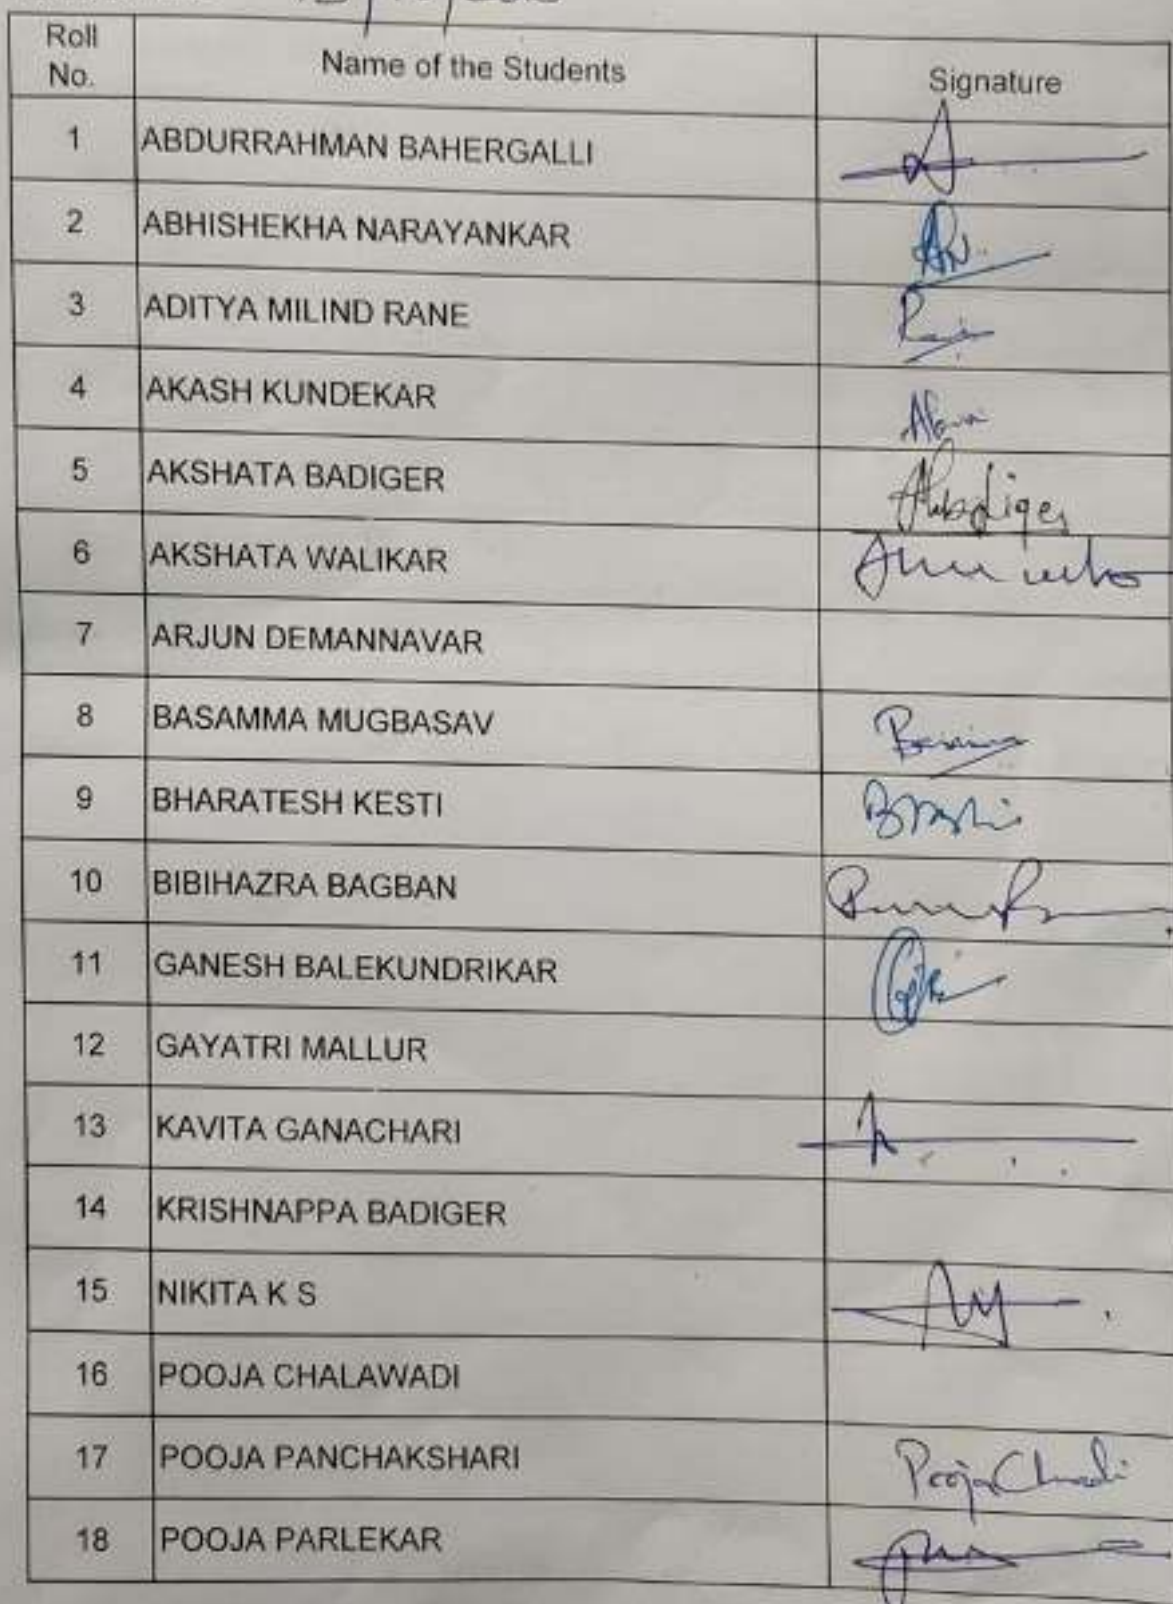 Roll No.
Name of the Students
Signature
1 ABDURRAHMAN BAHERGALLI
2 ABHISHEKHA NARAYANKAR
3 ADITYA MILIND RANE
4 AKASH KUNDEKAR
5 AKSHATA BADIGER
6 AKSHATA WALIKAR
7 ARJUN DEMANNAVAR
8 BASAMMA MUGBASAV
9 BHARATESH KESTI
10 BIBIHAZRA BAGBAN
11 GANESH BALEKUNDRIKAR
12 GAYATRI MALLUR
13 KAVITA GANACHARI
14 KRISHNAPPA BADIGER
15 NIKITA K S
16 POOJA CHALAWADI
17 POOJA PANCHAKSHARI Pooja
18 POOJA PARLEKAR